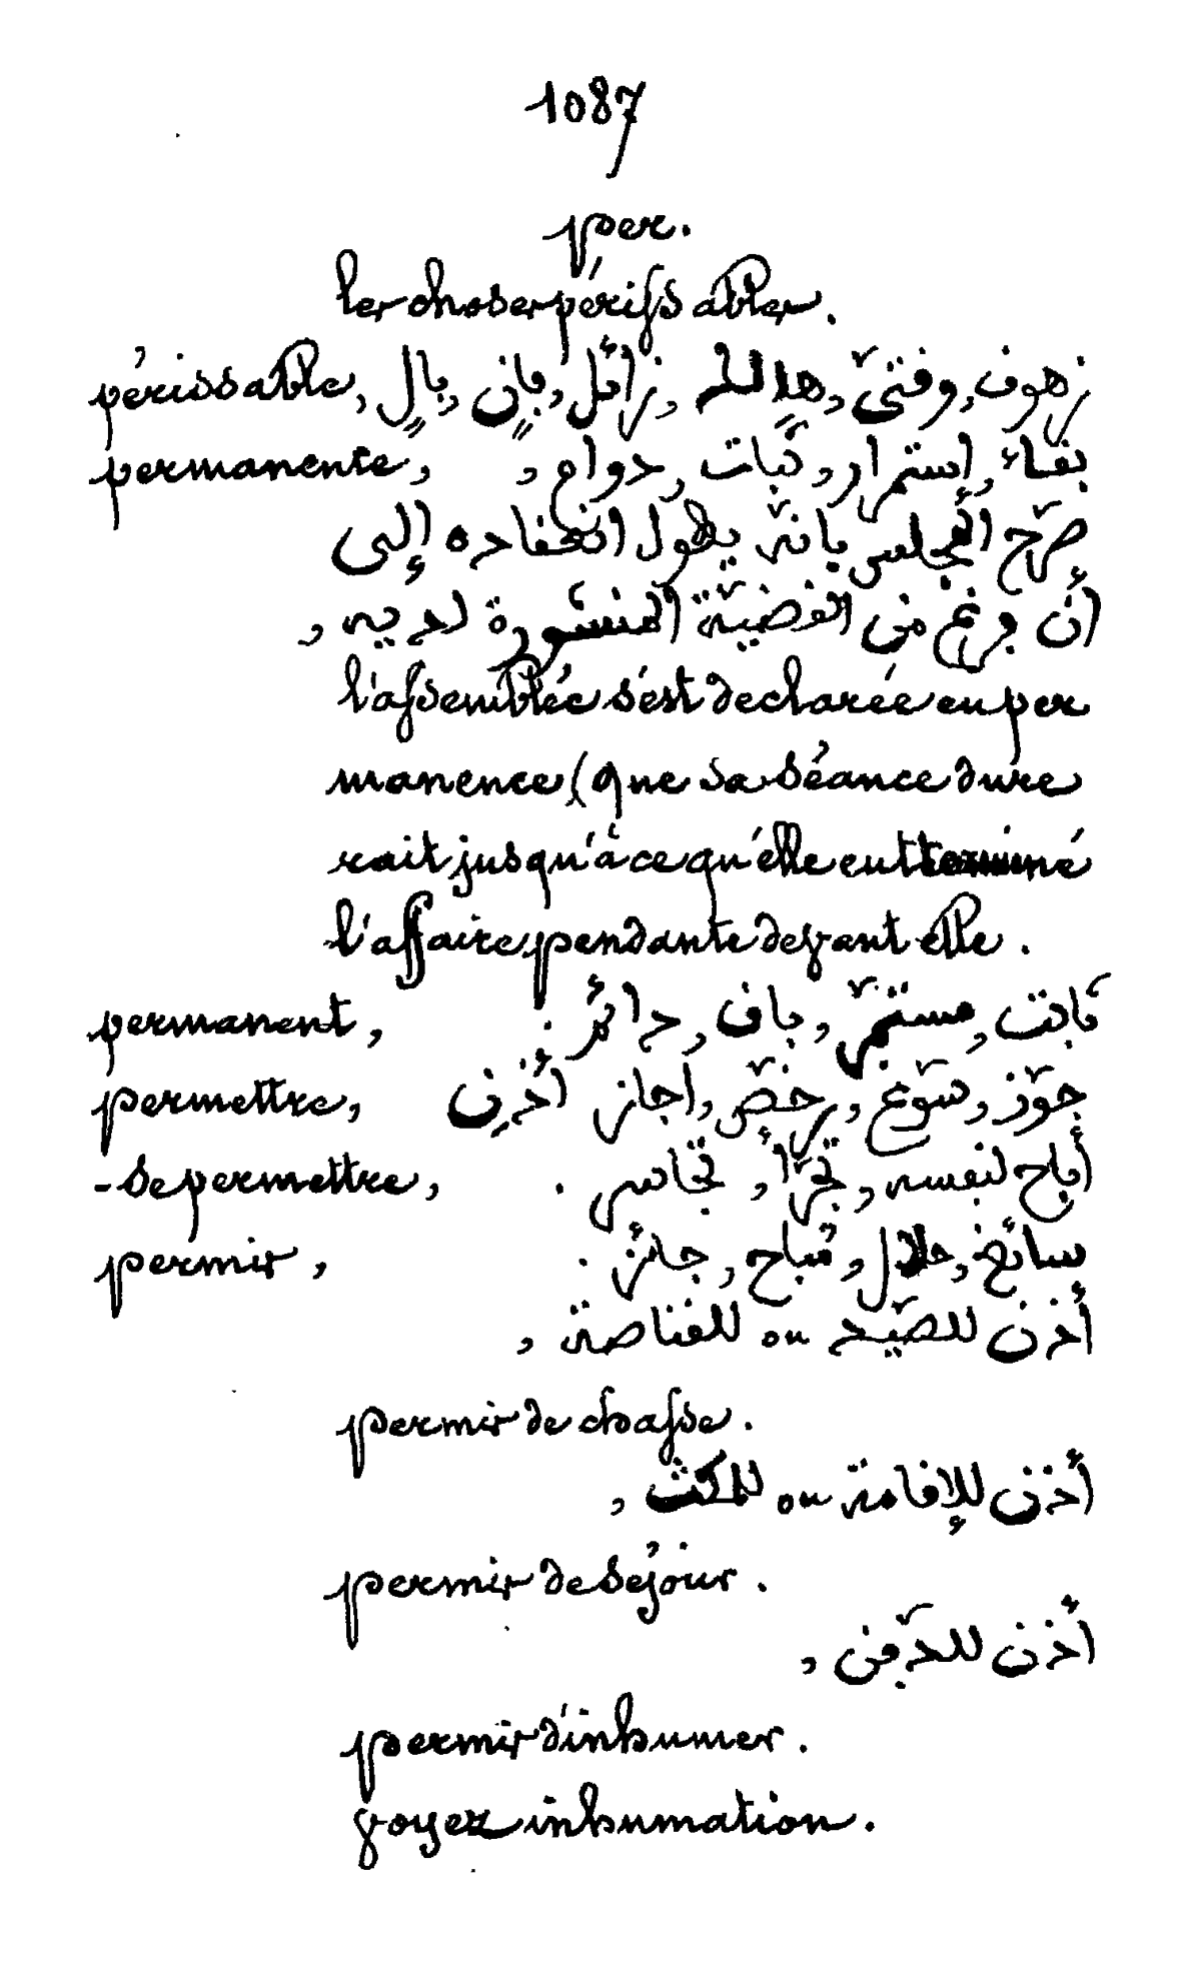 1087
per.
les choses périssables.
périssable, زهوف, وفتيّ, هالك, زائل, فانٍ, بالٍ
permanente, بقاء, إستمرار, ثبات, دوام,
صرّح المجلس بانّه يطول انعقاده إلى
أن فرغ من القضيّة المنشورة لديه,
l'assemblée s'est declarée en per
manence (que sa séance dure
rait jusqu'à ce qu'elle eut terminé
l'affaire pendante devant elle.
permanent, ثابت, مستمرّ, باق, دائم.
permettre, جوّز, سوّغ, رخّص, اجاز, أذِن
- se permettre, أباح لنفسه, تجرّأ, تجاسر.
permis, سائغ, حلال, مُباح, جائز.
أذن للصّيد ou للقناصة,
permis de chasse.
أذن للإقامة ou للمكث,
permis de séjour.
أذن للدّفن,
permis d'inhumer.
voyez inhumation.